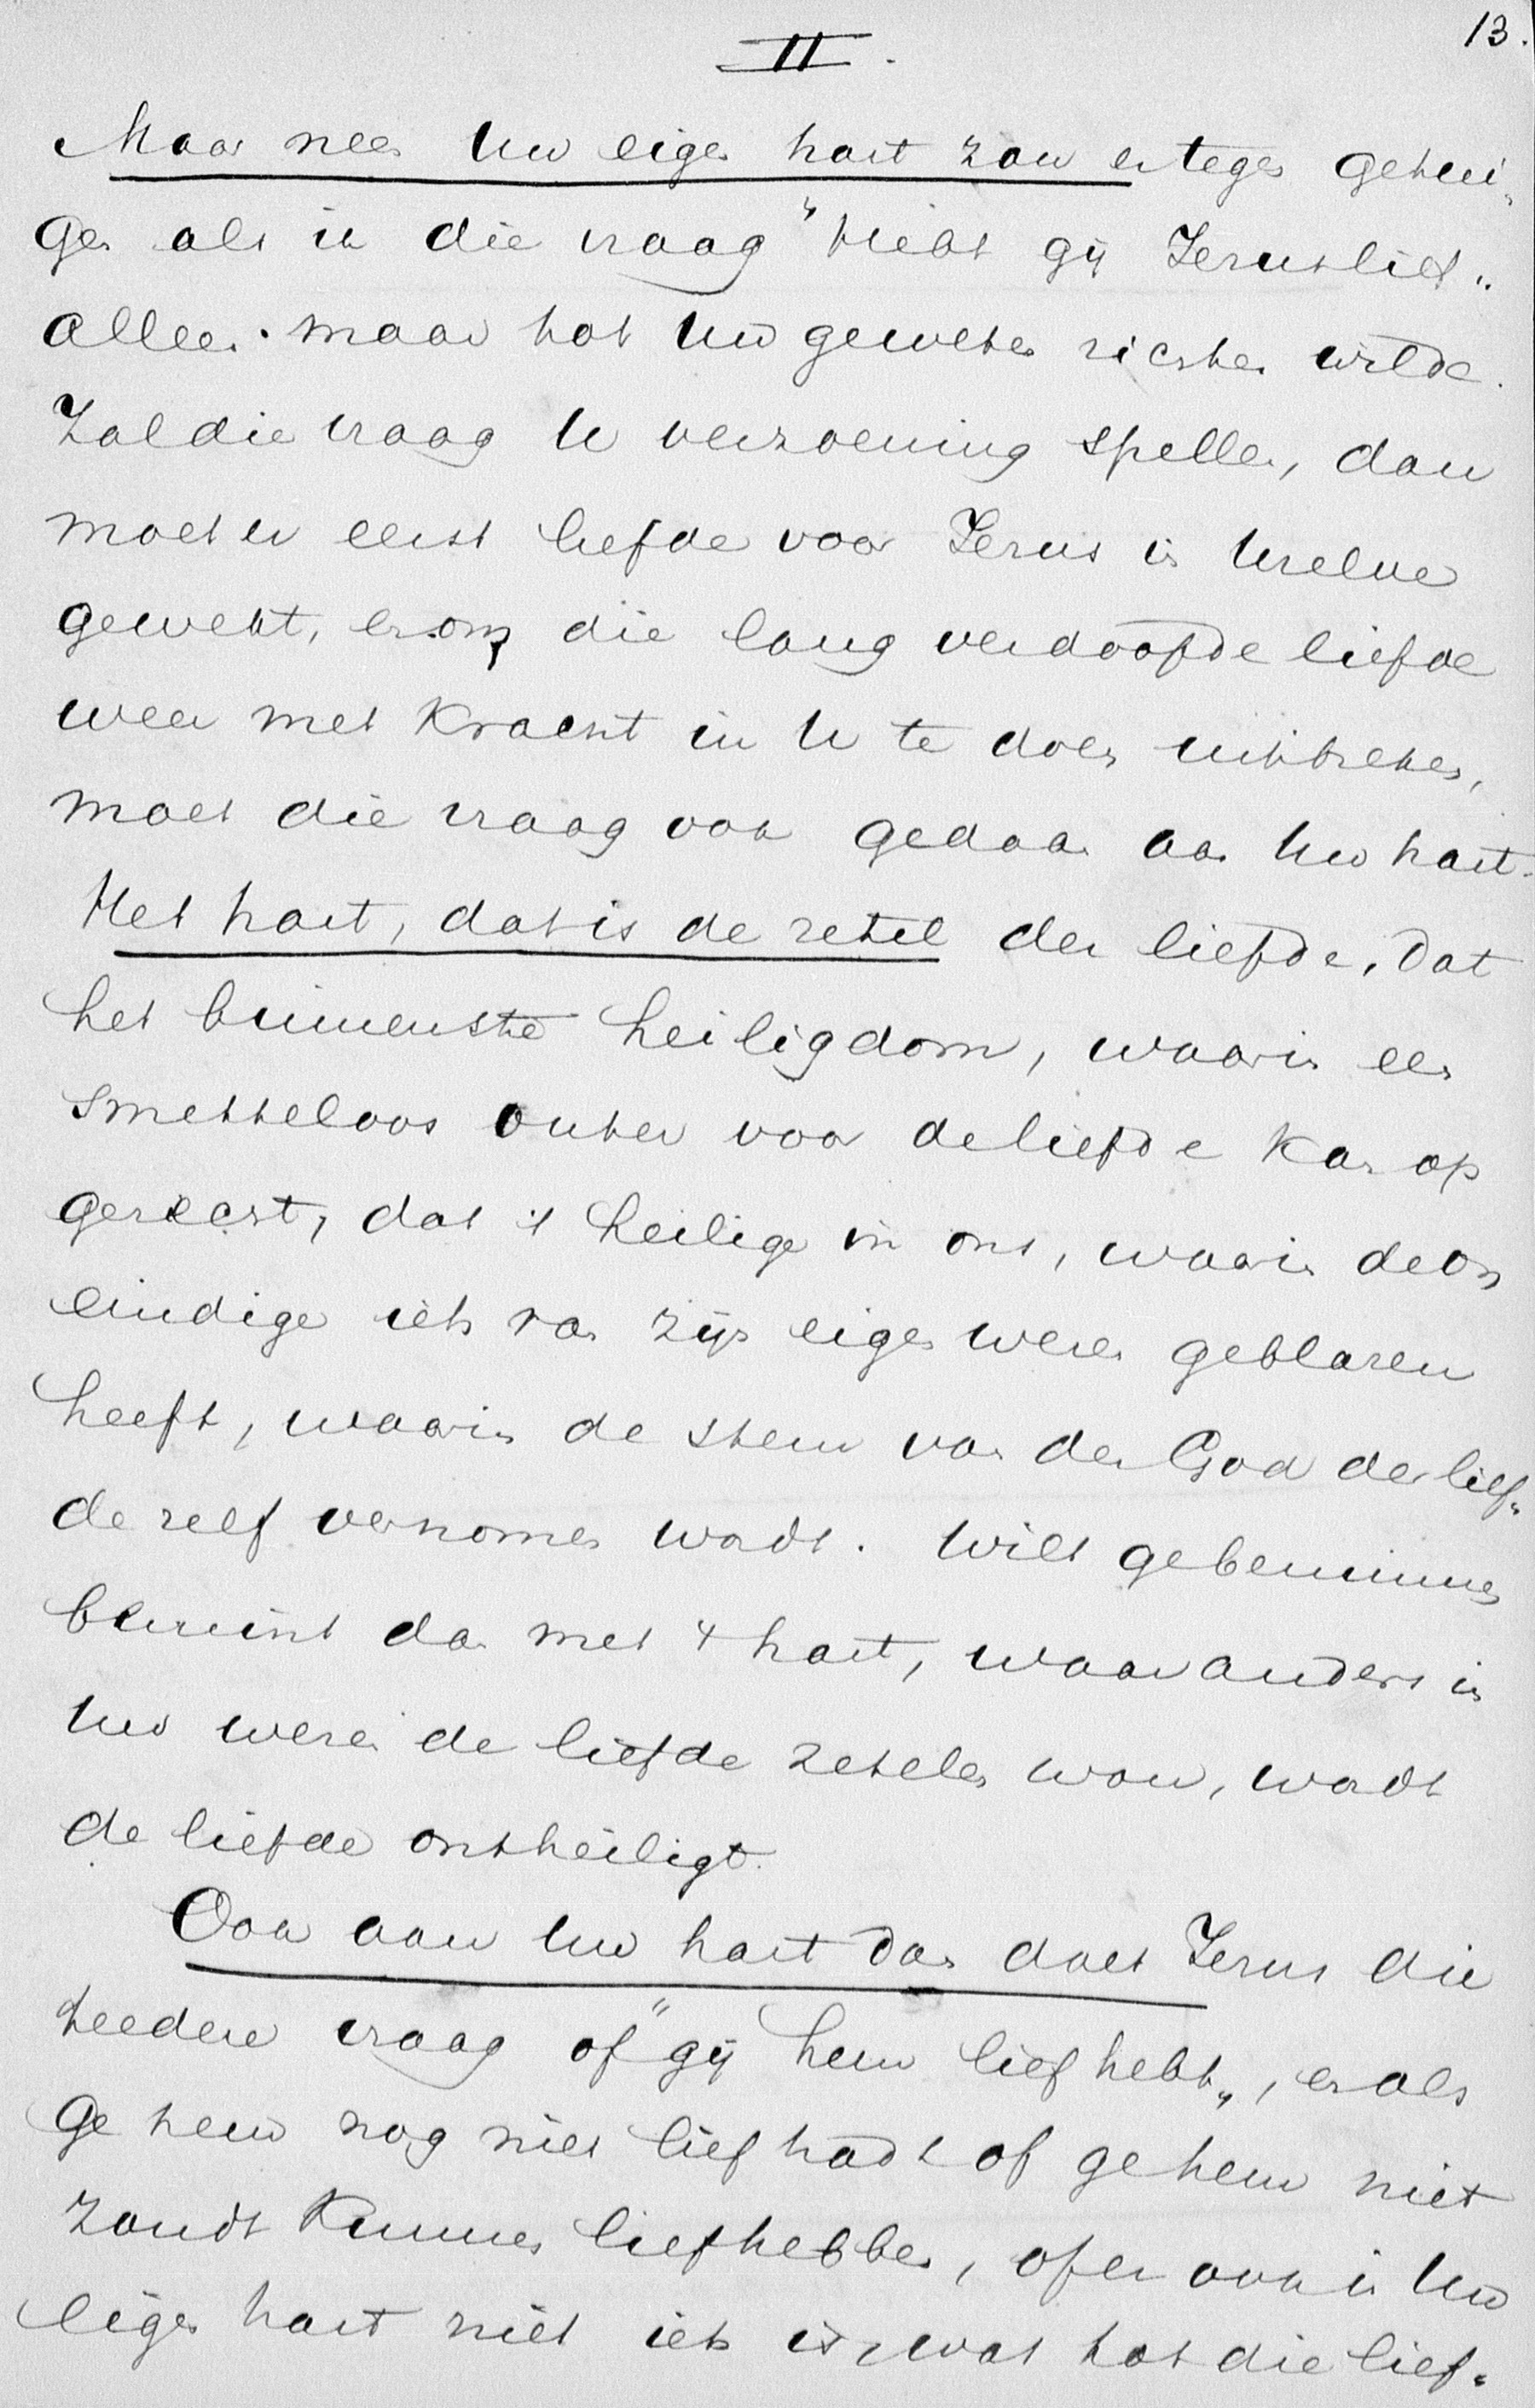 13.
II.
Maar neen Uw eigen hart zou er tegen getui-
gen als ik die vraag "Hebt gij Jezus lief"
alleen maar tot Uw geweten richten wilde.
Zal die vraag U verzoening spellen, dan
moet er eerst liefde voor Jezus in Uzelve
gewekt, en om die lang verdoofde liefde
weer met kracht in U te doen uitbreken,
moet die vraag ook gedaan aan Uw hart.
Het hart, dat is de zetel der liefde, dat
het binnenste heiligdom, waarin een
smetteloos outer voor de liefde kan op
gericht, dat 't heilige in ons, waarin de on
eindige iets van zijn eigen wezen geblazen
heeft, waarin de stem van den God der lief-
de zelf vernomen wordt. Wilt ge beminnen
bemint dan met 't hart, waar anders in
Uw wezen de liefde zetelen wou, wordt
de liefde ontheiligt.
Ook aan Uw hart dan doet Jezus die
teedere vraag of "gij hem lief hebt", en als
ge hem nog niet lief hadt of ge hem niet
zoudt kunnen liefhebben, of er ook in Uw
eigen hart niet iets is, wat tot die lief-